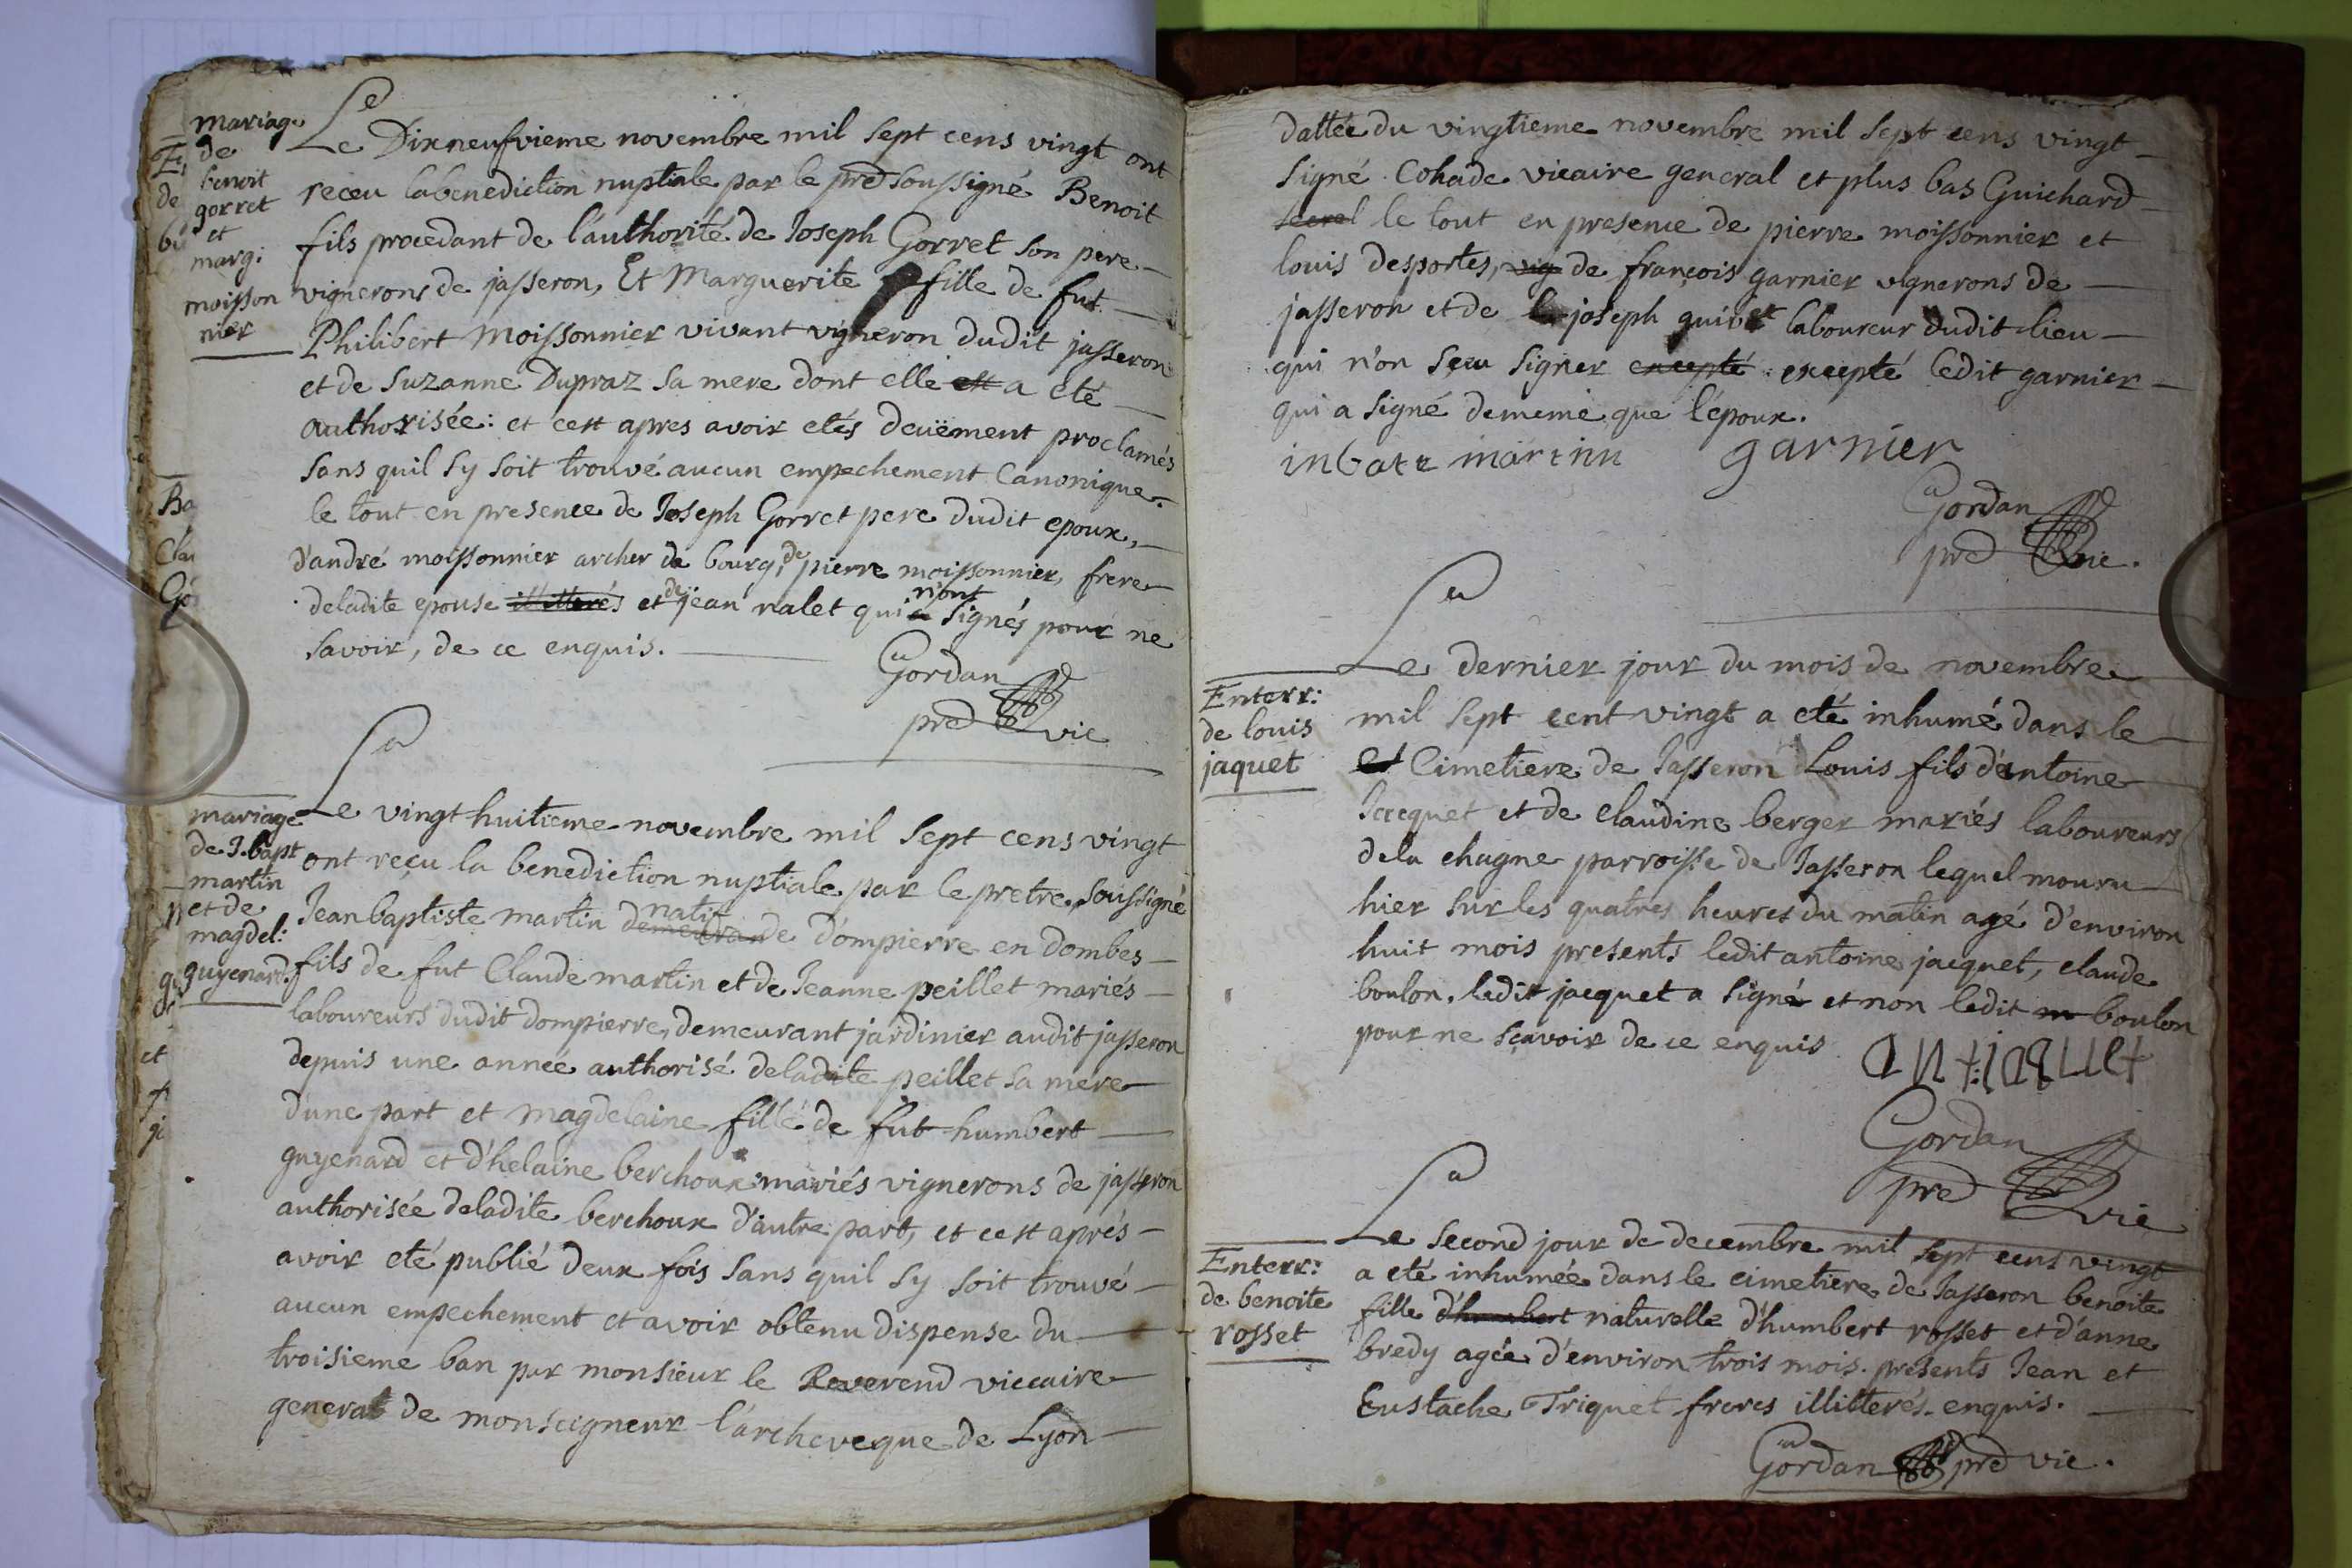 mariage
de
benoit
gorret
et
marg:
moisson
nier
Le Dixneufvieme novembre mil sept cens vingt ont
receu labenediction nuptiale par le pred soussigné Benoit
fils procedant de l'authorité de Joseph Gorret son pere
vignerons de jasseron, Et Marguerite fille de fut
Philibert Moissonnier vivant vigneron dudit jasseron
et de Suzanne Dupraz sa mere dont elle est a eté
authorisée: et cest apres avoir etés deuëment proclamés
sans quil sy soit trouvé aucun empechement Canonique
le tout en presence de Joseph Gorret pere dudit epoux,
d'andré moissonnier archer de bourg, de pierre moissonnier, frere
deladite epouse illitterés et de jean nalet qui n'ont signés pour ne
savoir, de ce enquis.
Gordan
pred vic
mariage
de J. bapt
martin
et de
magdel:
guyenard
Le vingthuitieme novembre mil sept cens vingt
ont reçu la benediction nuptiale par le pretre soussigné
Jean baptiste martin demeurant natif de d'ompierre en dombes
fils de fut Claude martin et de Jeanne peillet mariés
laboureurs dudit dompierre, demeurant jardinier audit jasseron
depuis une année authorisé deladite peillet sa mere
d'une part et magdelaine fille de fut humbert
guyenard et d'helaine berchoux mariés vignerons de jasseron
authorisée deladite berchoux d'autre part, et cest aprés
avoir eté publié deux fois sans quil sy soit trouvé
aucun empechement et avoir obtenu dispense du
troisieme ban par monsieur le Reverend viccaire
general de monseigneur l'archeveque de Lyon
dattée du vingtieme novembre mil sept cens vingt
signé Cohade vicaire general et plus bas Guichard
secret le tout en presence de pierre moissonnier et
louis desportes, vig de françois garnier vignerons de
jasseron et de joseph guivet laboureur dudit lieu
qui n'on sceu signer excepté excepté ledit garnier
qui a signé dememe que l'epoux.
inbatt martin garnier
Gordan
pred vic.
Enterr:
de louis
jaquet
Le dernier jour du mois de novembre
mil sept cent vingt a eté inhumé dans le
et Cimetiere de Jasseron Louis fils d'antoine
Jacquet et de claudine berger mariés laboureurs
dela chagne parroisse de Jasseron lequel mouru
hier sur les quatres heures du matin agé d'environ
huit mois presents ledit antoine jacquet, claude
boulon. ledit jacquet a signé et non ledit m boulon
pour ne sçavoir de ce enquis
Gordan
pred vic
Enterr:
de benoite
rosset
Le second jour de decembre mil sept cens vingt
a eté inhumée dans le cimetiere de Jasseron benoite
fille d'humbert naturelle d'humbert rosset et d'anne
bredy agée d'environ trois mois. presents Jean et
Eustache Triquet freres illitterés enquis.
Gordan pred vic.